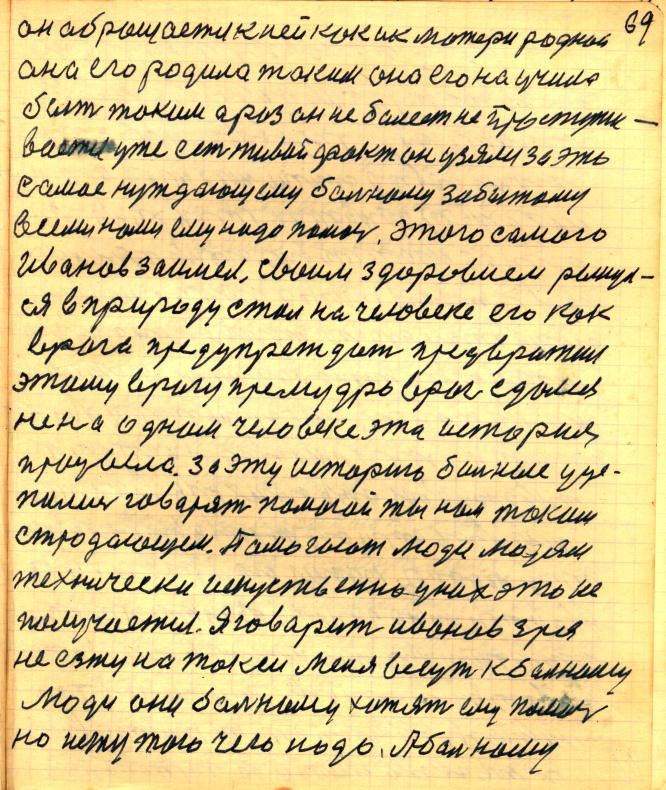 69
он абращается к ней как ик матери родной
она его родила таким она его научила
быть таким а раз он не балеет не простужи-
вается уже есть живой факт он узяли за эть
самае нуждающему балному забытому
всеми ками ему надо помоч. Этого самого
Иванов заимел, своим здоровием ринул-
ся в природу стал на человеке его как
врага предупреждат предвратил
этаму врагу премудро враг сдался
не на одном человеке эта история
произвела. За эту историю балные уце-
пилис говарят помогай ты нам таким
стродающем. Памогают люди людям
технически искуственно у них это не
получается. Я говарит иванов зря
не езжу на такси меня везут к балному
люди они балному хотят ему помоч
но нету того чего надо. А балному